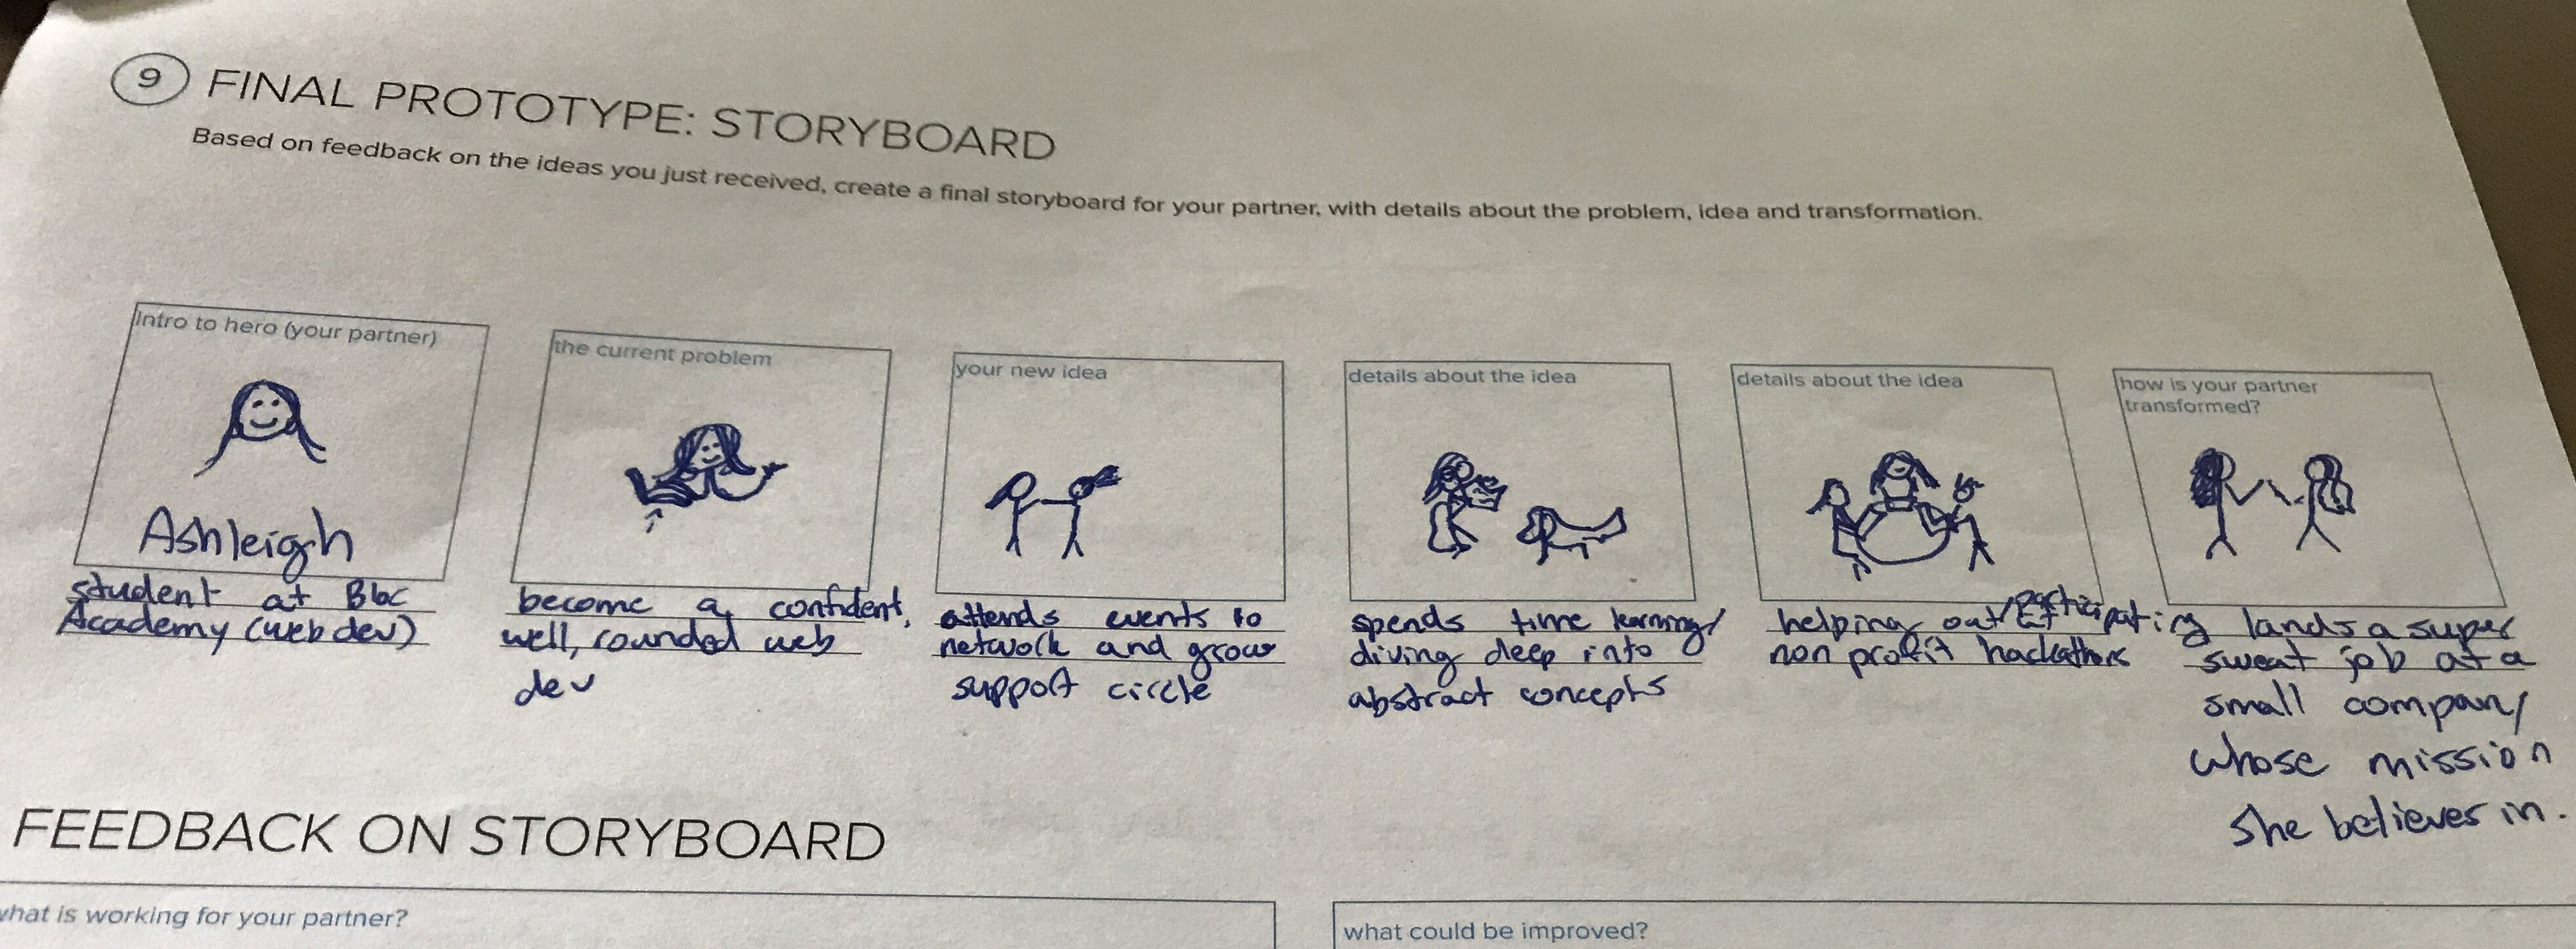 9 FINAL PROTOTYPE: STORYBOARD
Based on feedback on the ideas you just received, create a final storyboard for your partner, with details about the problem, idea and transformation.
Intro to hero (your partner)
Ashleigh
student at Bloc
Academy (web dev)
the current problem
become a confident,
well, rounded web
dev
your new idea
attends events to
network and grow
support circle
details about the idea
spends time learning/
diving deep into
abstract concepts
details about the idea
helping out/participating
non profit hackathons
how is your partner
transformed?
lands a super
sweat job at a
small company
whose mission
she believes in.
FEEDBACK ON STORYBOARD
what is working for your partner?
what could be improved?